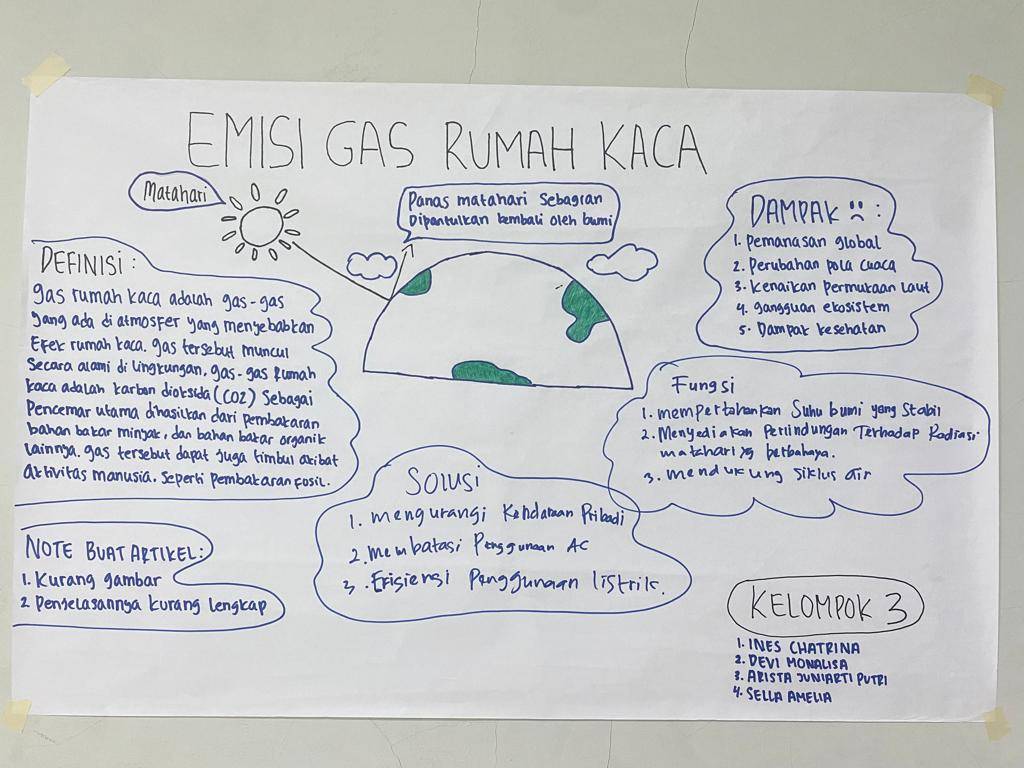 EMISI GAS RUMAH KACA
Matahari
Panas matahari Sebagian
Dipantulkan kembali oleh bumi
DEFINISI :
gas rumah kaca adalah gas-gas
yang ada di atmosfer yang menyebabkan
Efek rumah kaca. gas tersebut muncul
Secara alami di lingkungan, gas-gas Rumah
kaca adalah karbon dioksida (CO2) Sebagai
Pencemar utama dihasilkan dari pembakaran
bahan bakar minyak, dan bahan bakar organik
lainnya. gas tersebut dapat juga timbul akibat
aktivitas manusia. Seperti pembakaran fosil.
NOTE BUAT ARTIKEL:
1. Kurang gambar
2. Penjelasannya kurang lengkap
Solusi
1. mengurangi Kendaraan Pribadi
2. membatasi Penggunaan AC
3. Efisiensi Penggunaan listrik.
DAMPAK :( :
1. pemanasan global
2. Perubahan pola cuaca
3. Kenaikan Permukaan Laut
4. gangguan ekosistem
5. Dampak kesehatan
Fungsi
1. mempertahankan Suhu bumi yang Stabil
2. Menyediakan Perlindungan Terhadap Radiasi
matahari yg berbahaya.
3. mendukung Siklus air
KELOMPOK 3
1. INES CHATRINA
2. DEVI MONALISA
3. ARISTA JUNIARTI PUTRI
4. SELLA AMELIA